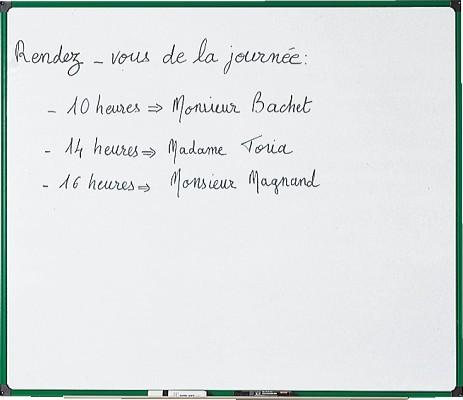 Rendez-vous de la journée:
- 10 heures ⇒ Monsieur Bachet
- 14 heures ⇒ Madame Toria
- 16 heures ⇒ Monsieur Magnand